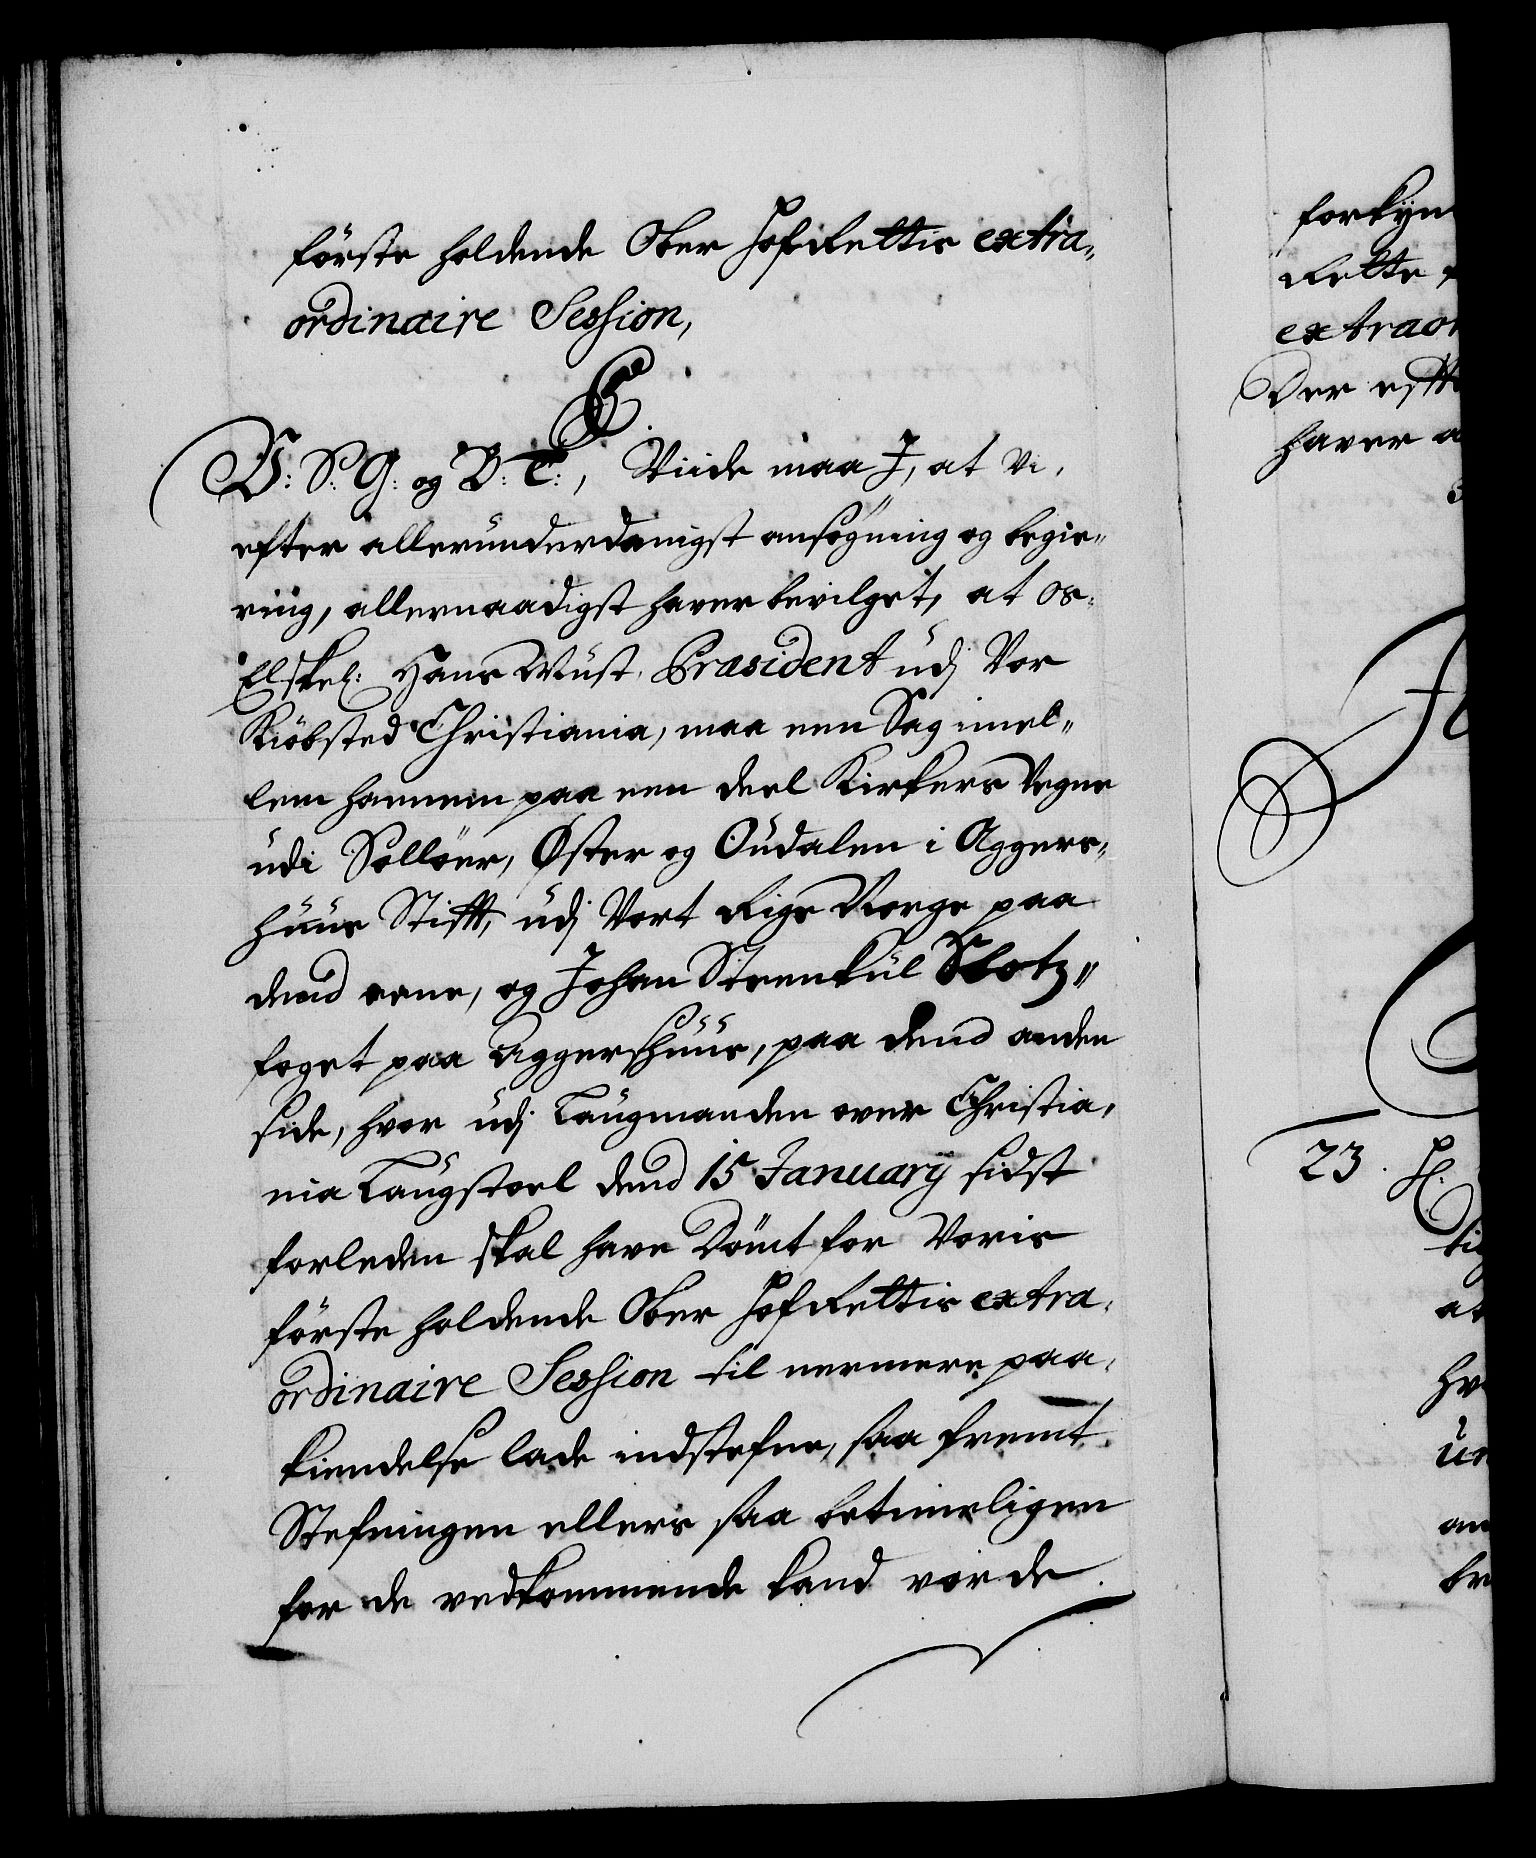 förste holdende Ober HofRettis extra„
ordinaire Session,
C.
V: S: G: og B: T:, Viide maa I, at Vi,
efter allerunderdanigst ansögning og begie„
ring, allernaadigst haver bevilget, at Os
Elskel: Hans Wüst, Præsident udj Vor
Kiöbsted Christiania, maa een Sag imel„
lem hannem paa een deel Kirkers Vegne
udi Solloer, Øster og Oudalen i Aggers„
huus Stifft, udj Vort Rige Norge paa
dend eene, og Johan Steenkul Slotz„
foget paa Aggershuus, paa dend anden
side, hvor udj Laugmanden over Christia„
nia Laugstoel dend 15 January sidst
forleden skal have Dömt for Voris
förste holdende Ober HofRettis extra„
ordinaire Session til nermere paa„
kiendelse lade indstefne, saa fremt
Stefningen ellers saa betimeligen
for de vedkommende kand vorde
forkyn
Rette
extraor
Der efft
haver a
23.